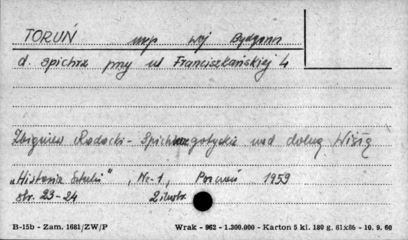 TORUŃ msp woj Bydgoszcz
d. spichrz przy ul Franciszkańskiej 4
Zbigniew Radacki - Spichrze gotyckie nad dolną Wisłą
„Historia Sztuki", Nr-1, Poznań 1959
str. 23-24 2 ilustr.
B-15b - Zam. 1681/ZW/P Wrak - 962 - 1.300.000 - Karton 5 kl. 180 g. 61x86 - 10. 9. 60